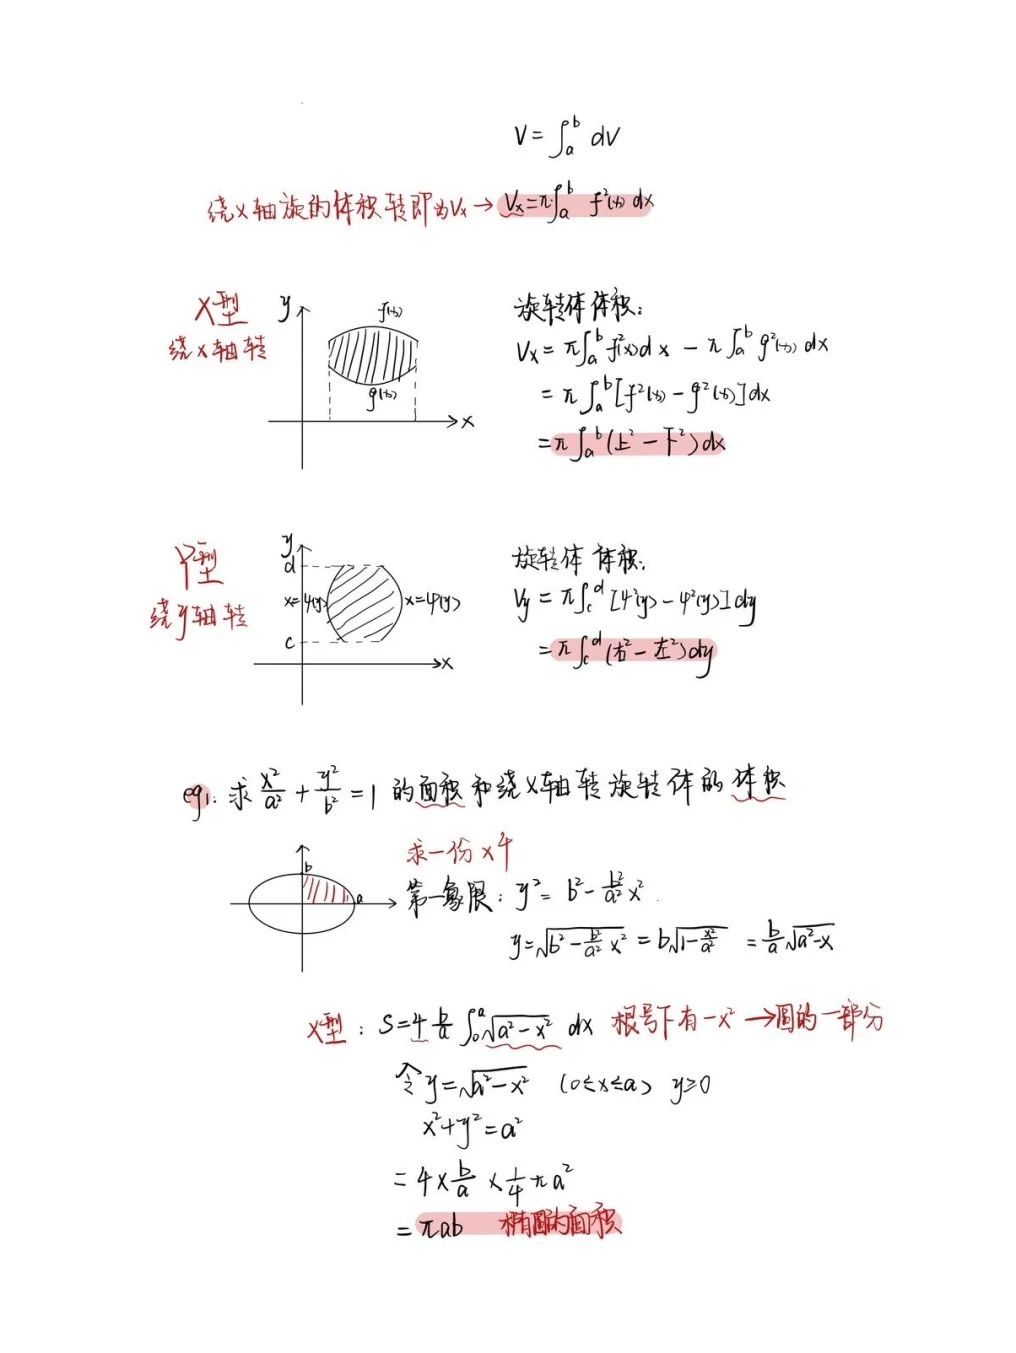 V = ∫ₐᵇ dV
绕x轴旋的体积转即为Vx → Vx = π∫ₐᵇ f²(x) dx
X型
绕x轴转
y
f(x)
g(x)
x
旋转体体积:
Vx = π∫ₐᵇ f²(x)dx − π∫ₐᵇ g²(x)dx
= π∫ₐᵇ[f²(x) − g²(x)]dx
= π∫ₐᵇ(上² − 下²)dx
Y型
绕y轴转
y
d
x=φ(y)
c
x
旋转体 体积:
= π∫꜀ᵈ(右² − 左²)dy
eg1: 求 x²/a² + y²/b² = 1 的面积和绕x轴转旋转体的体积
求一份×4
b
a
第一象限: y² = b² − b²/a² x²
y = √(b² − b²/a² x²) = b√(1 − x²/a²) = b/a √(a²−x)
X型: S = 4 b/a ∫₀ᵃ √(a² − x²) dx 根号下有−x² → 圆的一部分
令 y = √(a² − x²) (0≤x≤a) y≥0
x² + y² = a²
= 4 × b/a × 1/4 πa²
= πab 椭圆的面积